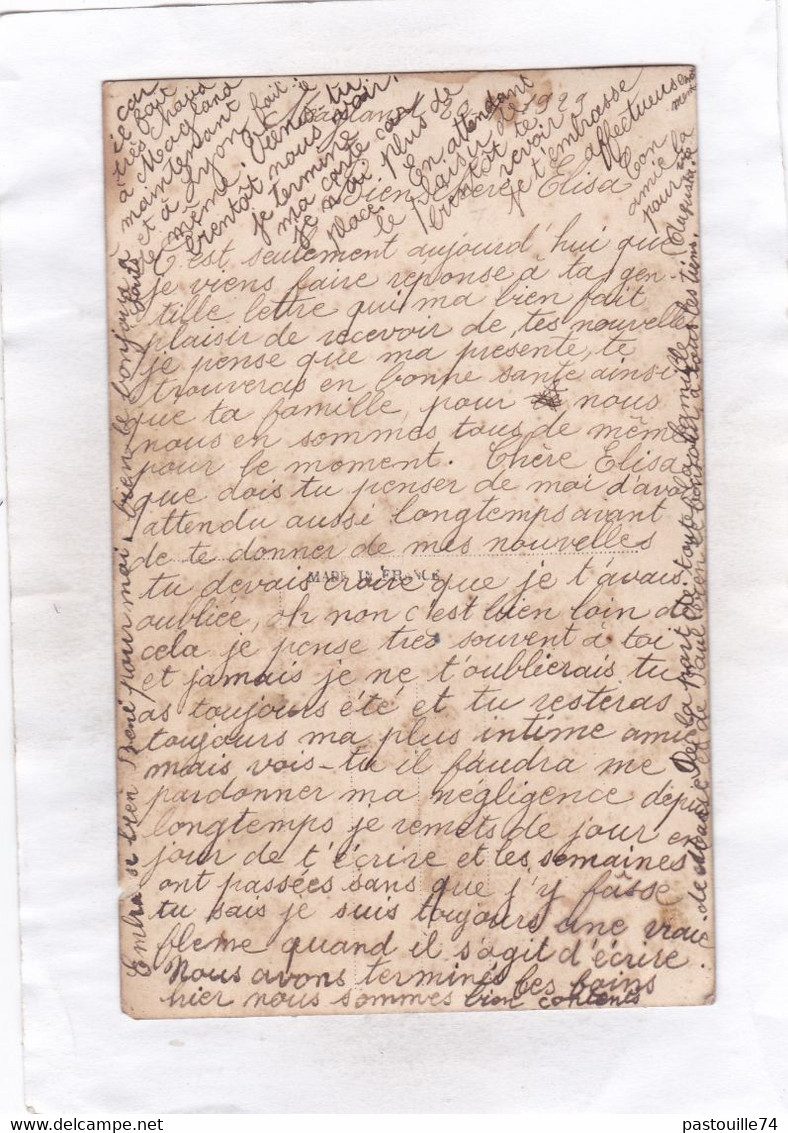 Magland 1929
Bien chère Elisa
C'est seulement aujourd'hui que
je viens faire reponse à ta gen-
tille lettre qui ma bien fait
plaisir de recevoir de tes nouvelles
je pense que ma presente te
trouveras en bonne santé ainsi
que ta famille, pour nous
nous en sommes tous de même
pour le moment. Chère Elisa
que dois tu penser de moi d'avoir
attendu aussi longtemps avant
de te donner de mes nouvelles
tu devais croire que je t'avais
oubliée, oh non c'est bien loin de
cela je pense très souvent à toi
et jamais je ne t'oublierais tu
as toujours été et tu resteras
toujours ma plus intime amie
mais vois-tu il faudra me
pardonner ma négligence depuis
longtemps je remets de jour en
jour de t'écrire et les semaines
ont passées sans que j'y fasse
tu sais je suis toujours une vraie
fleme quand il s'agit d'écrire
Nous avons terminés les foins
hier nous sommes bien contents
car
il fait
très chaud
à Magland
maintenant
et à Lyon fait-il
de même. Viens tu
bientôt nous voir.
Je termine
ma carte car
je n'ai plus de
place. En attendant
le plaisir de
bientôt te
revoir
je t'embrasse
affectueusement
Ton
amie
pour la vie
Augusta
Embrasse bien René pour moi, bien le bonjour à
De la part de toute la famille
de Marie et de Paul bien le bonjour à tous les tiens.
MADE IN FRANCE
www.delcampe.net
pastouille74